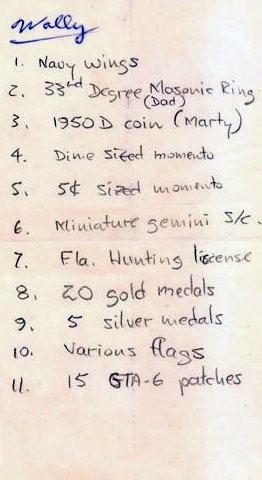 Wally
1. Navy wings
2. 33rd Degree Masonic Ring
(Dad)
3. 1950 D coin (Marty)
4. Dime sized momento
5. 5¢ sized momento
6. Miniature gemini s/c.
7. Fla. Hunting liscense
8. 20 gold medals
9. 5 silver medals
10. Various flags
11. 15 GTA-6 patches